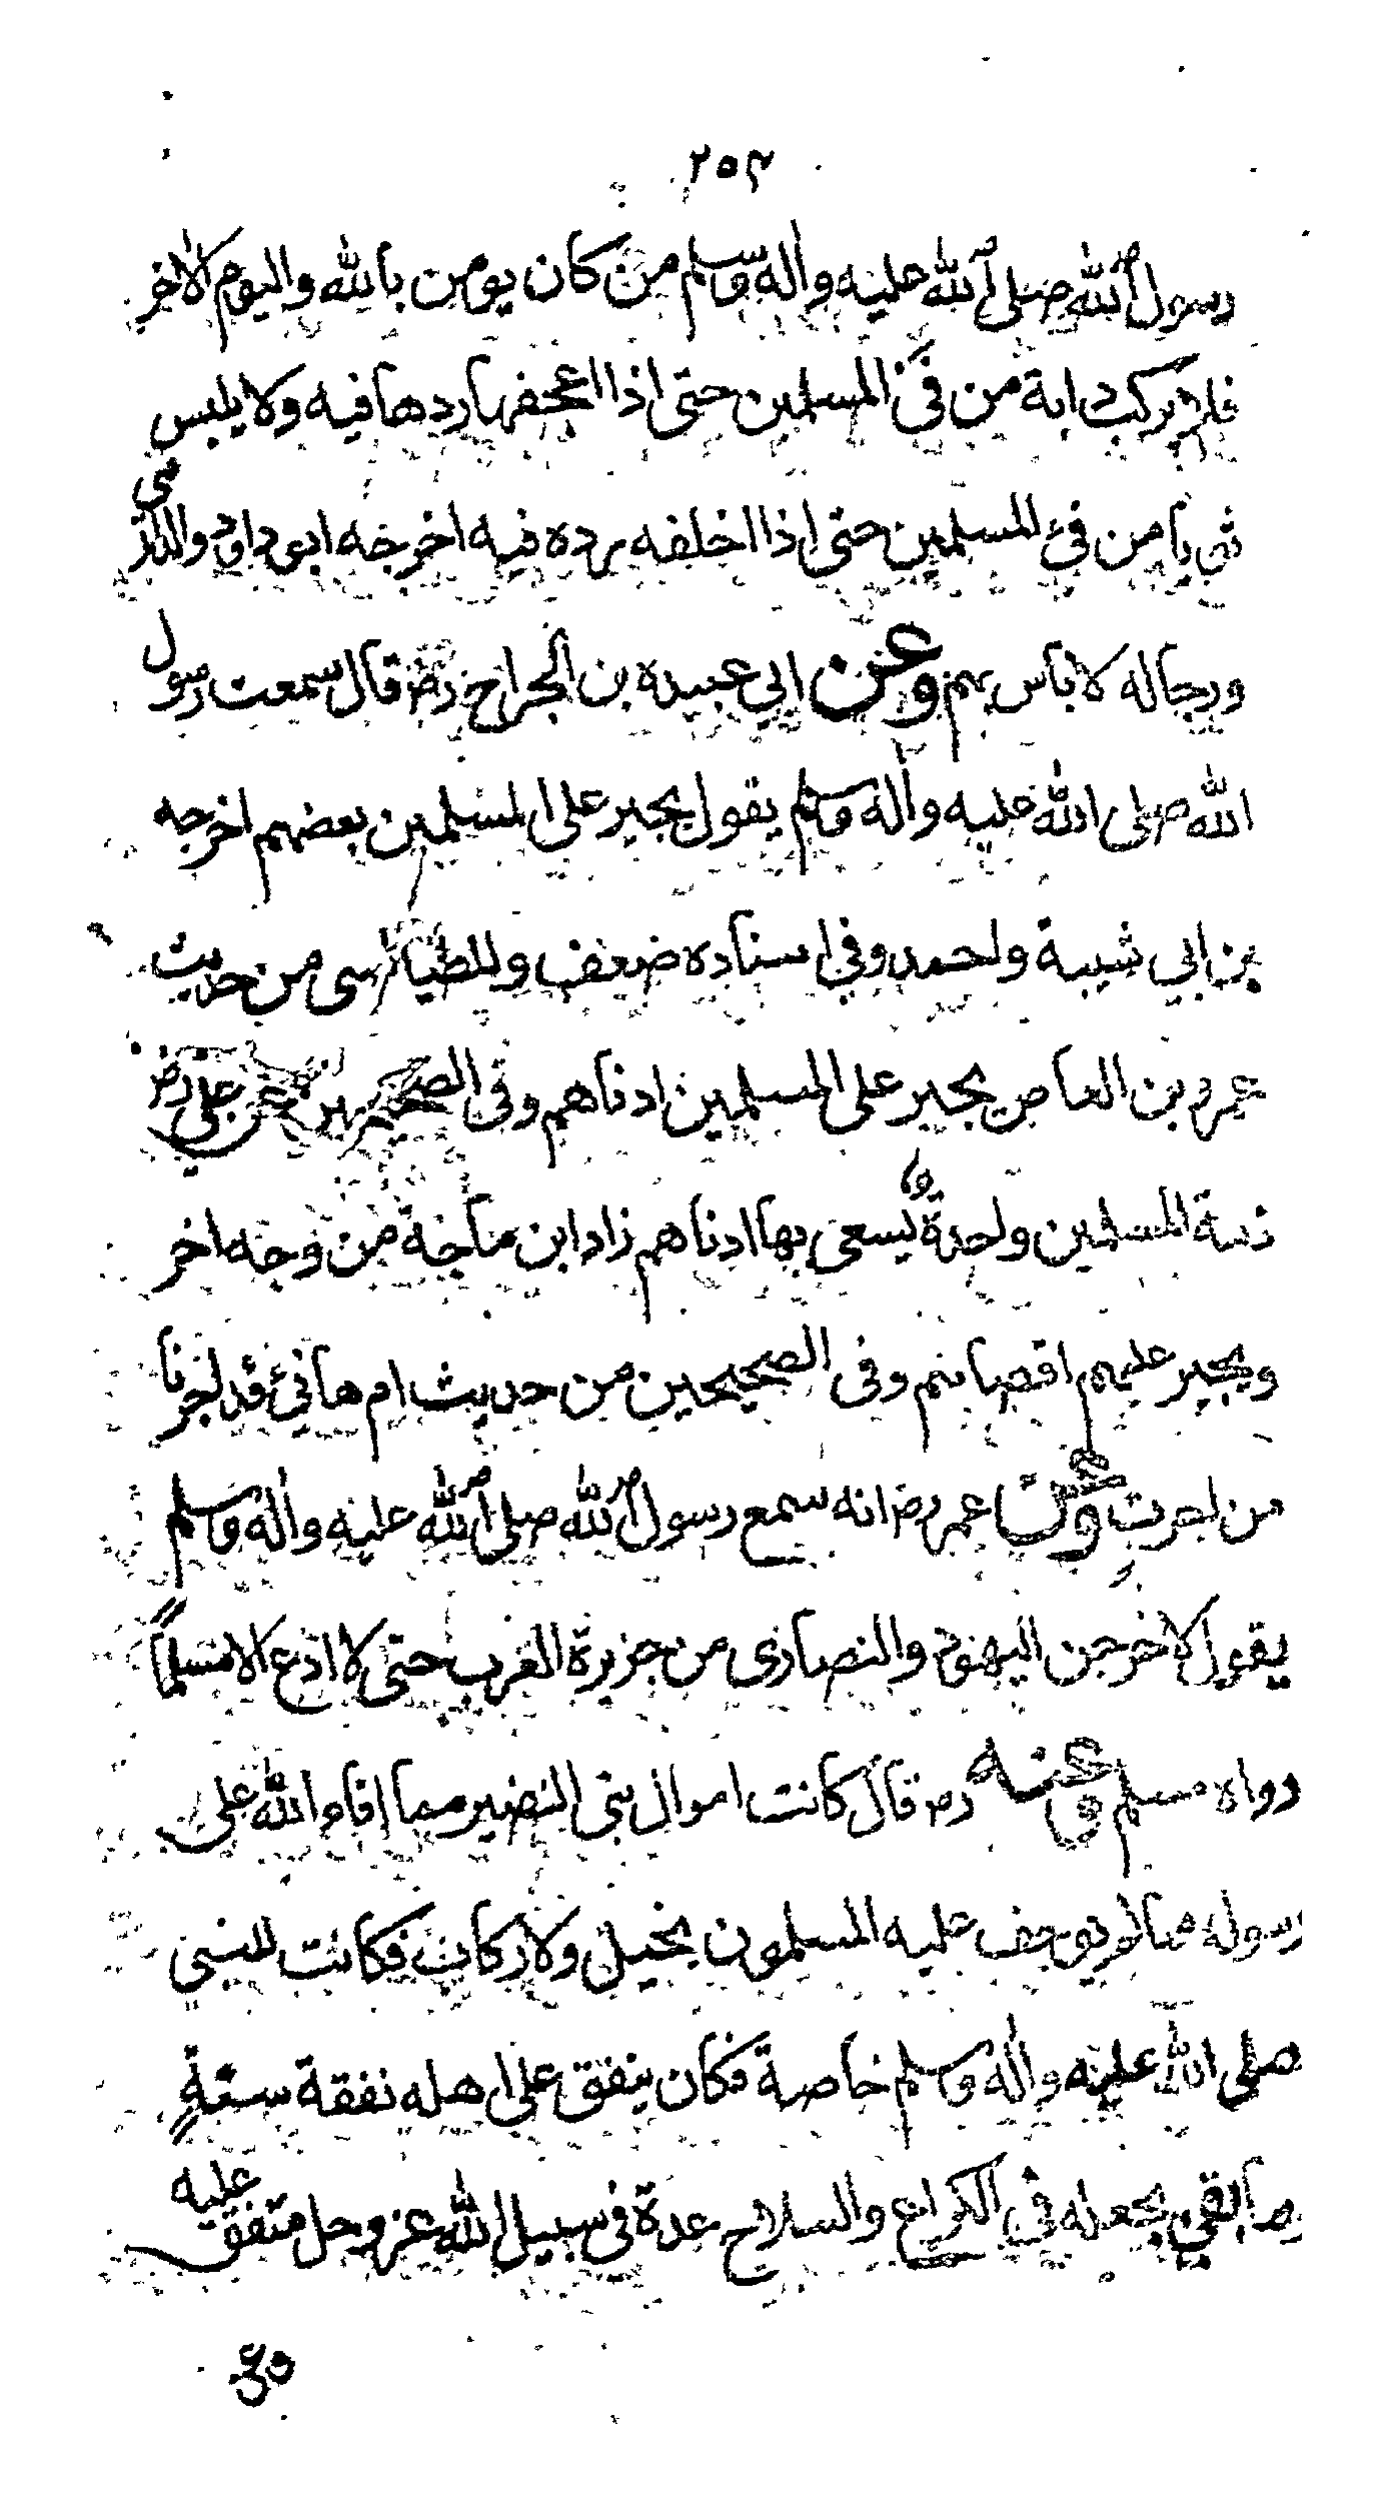 ٢٥٣
رسول الله صلى الله عليه واله وسلم من كان يومن بالله واليوم الاخر
فلا يركب دابة من فئ المسلمين حتى اذا اعجفها ردها فيه ولا يلبس
ثوبا من فئ المسلمين حتى اذا اخلقه رده فيه اخرجه ابو داود والدارمي
ورجاله لا باس بهم وعن ابي عبيده بن الجراح رض قال سمعت رسول
الله صلى الله عليه واله وسلم يقول يجير على المسلمين بعضهم اخرجه
بن ابي شيبة واحمد وفي اسناده ضعف وللطيالسى من حديث
عمرو بن العاص يجير على المسلمين ادناهم وفى الصحيحين عن على رض
ذمة المسلمين واحدة يسعى بها ادناهم زاد ابن ماجة من وجه اخر
ويجير عليهم اقصاهم وفى الصحيحين من حديث ام هانئ قد اجرنا
من اجرت وعن عمر رض انه سمع رسول الله صلى الله عليه واله وسلم
يقول لاخرجن اليهود والنصارى من جزيرة العرب حتى لا ادع الا مسلماً
رواه مسلم وعنه رض قال كانت اموال بنى النضير مما افاء الله على
رسوله مما لم يوجف عليه المسلمون بخيل ولا ركاب فكانت للنبى
صلى الله عليه واله وسلم خاصة فكان ينفق على اهله نفقة سنةٍ
وما بقي يجعله في الكراع والسلاح عدة فى سبيل الله عز وجل متفق عليه